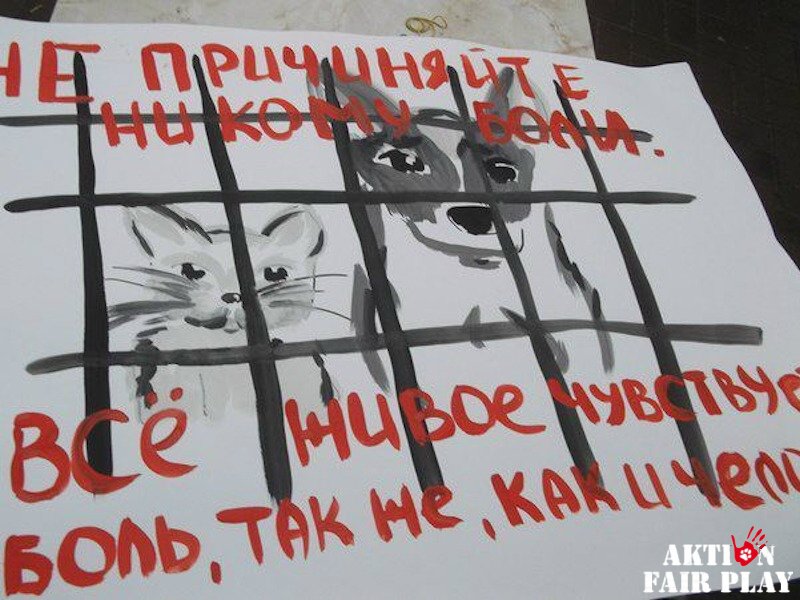 НЕ ПРИЧИНЯЙТЕ
НИКОМУ БОЛИ.
ВСЁ ЖИВОЕ ЧУВСТВУЕ
БОЛЬ, ТАК ЖЕ, КАК И ЧЕЛО
AKTION
FAIR PLAY